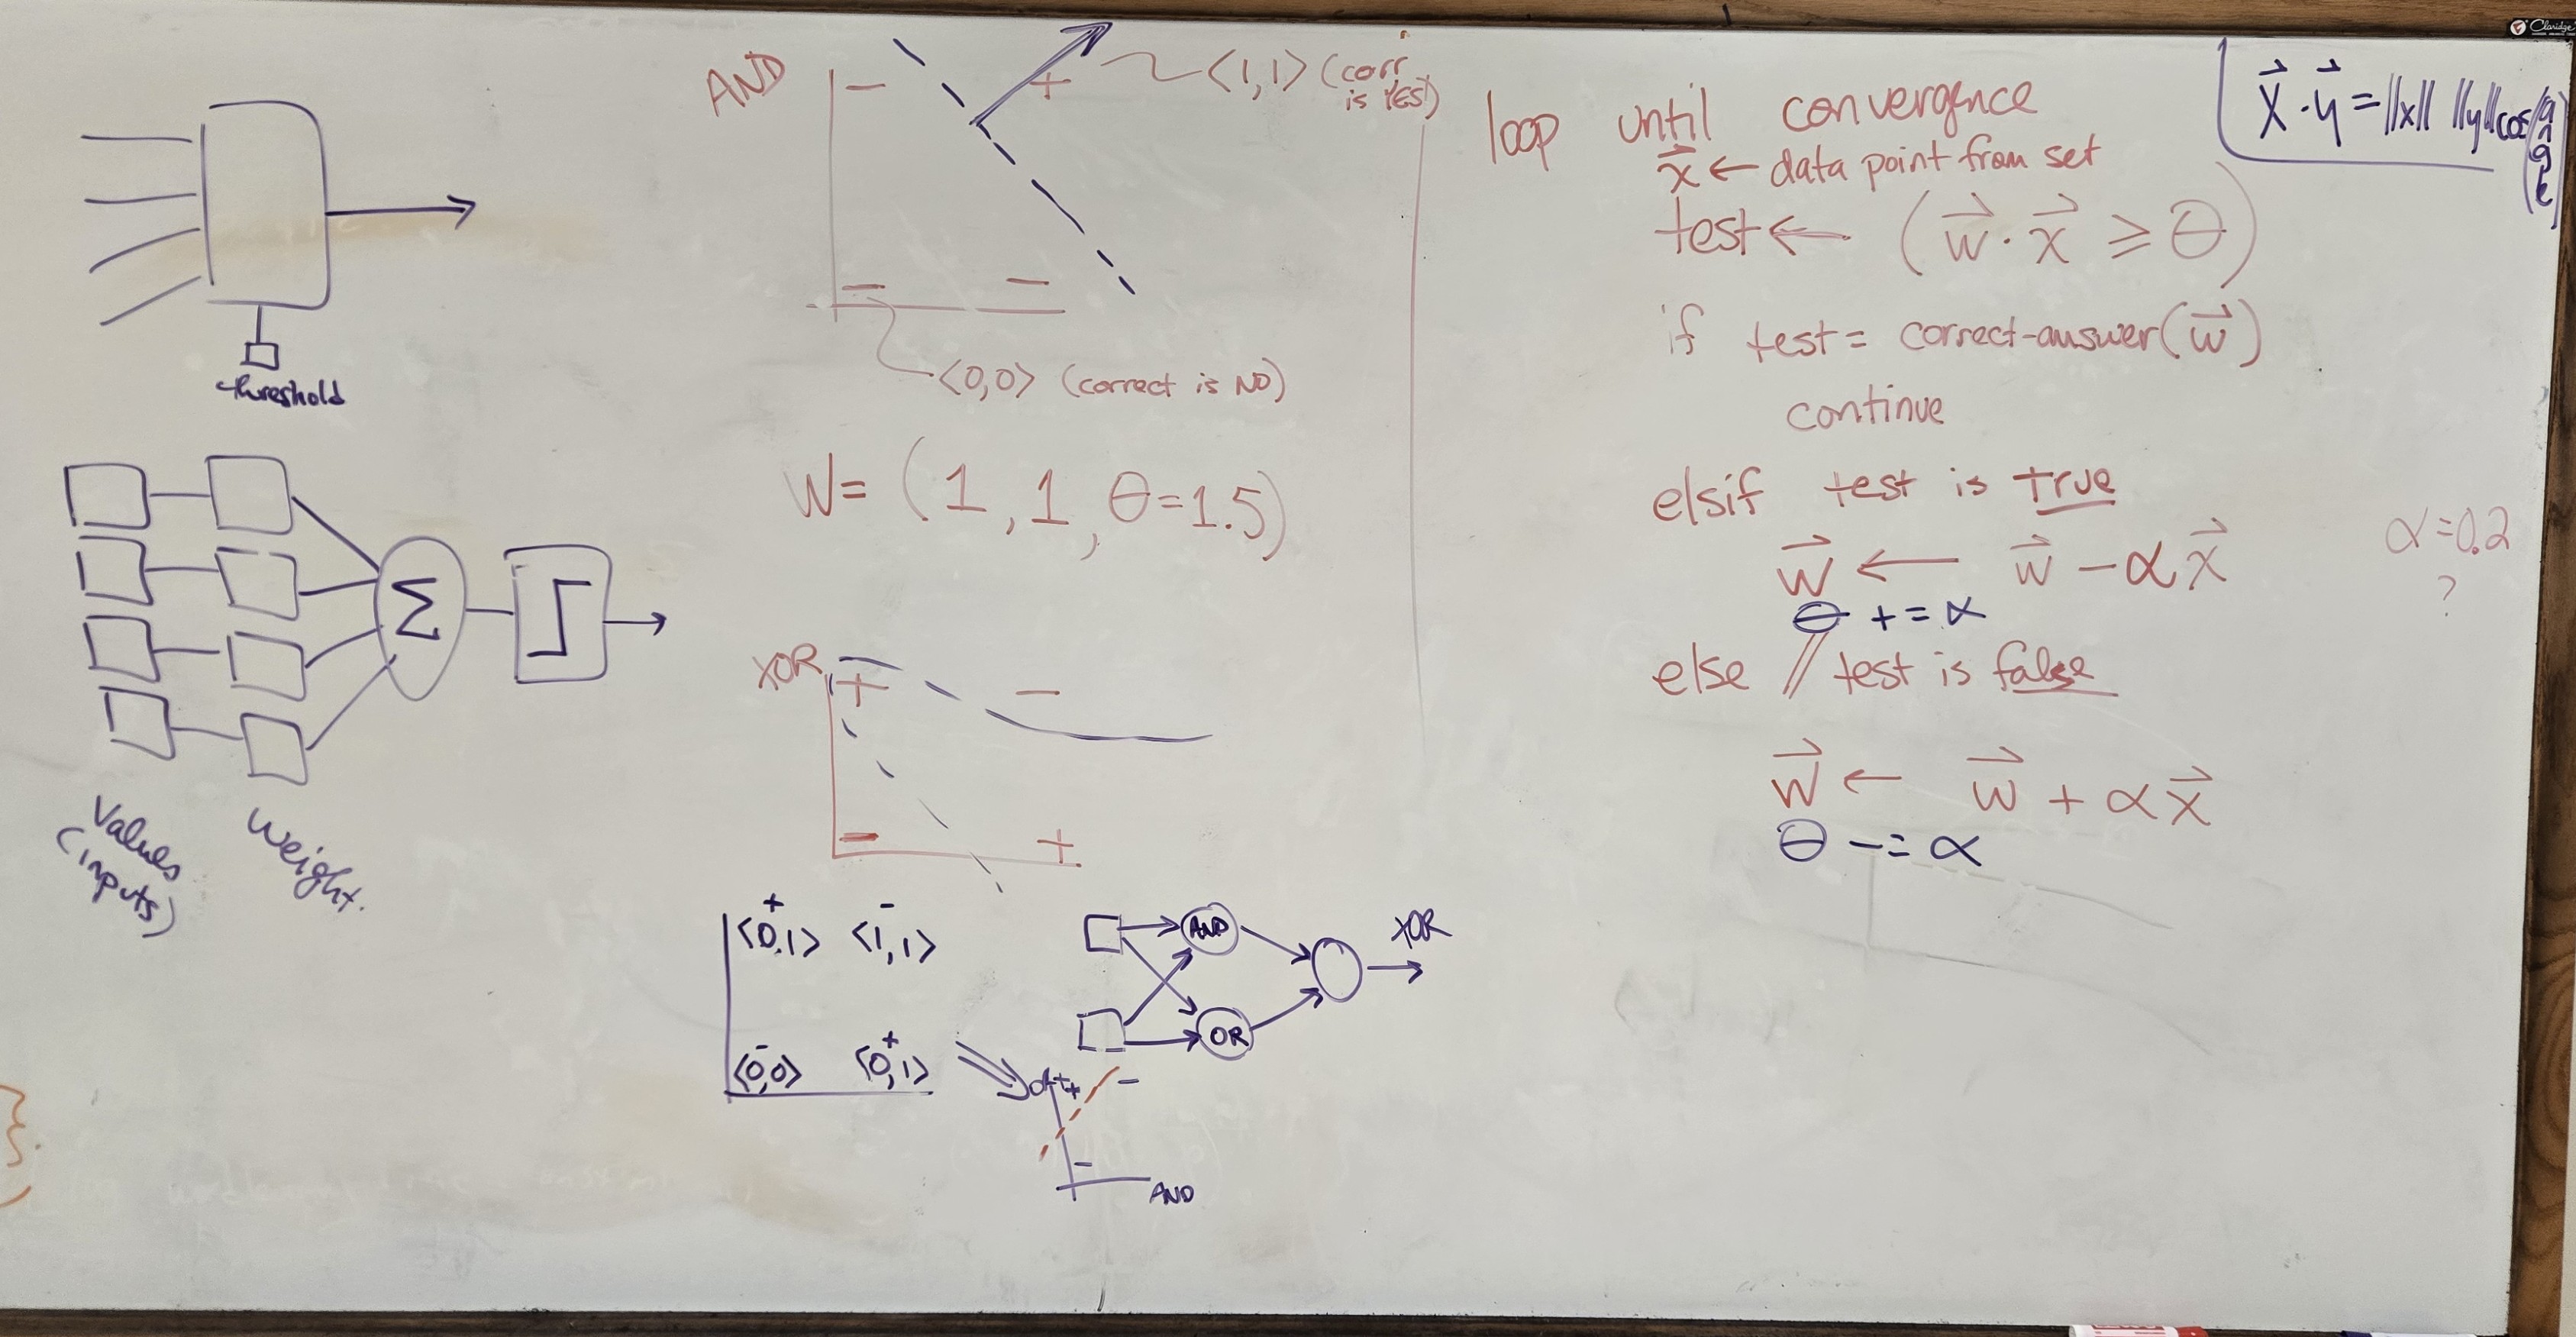 threshold
Values
(inputs)
weight.
AND
− +
<1,1> (corr
is YES!)
− −
<0,0> (correct is NO)
W= (1, 1, θ=1.5)
XOR
+ −
− +
+ −
<0,1> <1,1>
− +
<0,0> <0,1>
AND
OR
XOR
−
−
AND
loop until convergence
x⃗ ← data point from set
test ← (w⃗ · x⃗ ≥ θ)
if test = correct-answer(w⃗)
continue
elsif test is true
w⃗ ← w⃗ − αx⃗
θ += α
else // test is false
w⃗ ← w⃗ + αx⃗
θ -= α
x⃗ · y⃗ = ||x|| ||y|| cos(angle)
α=0.2
?
Claridge